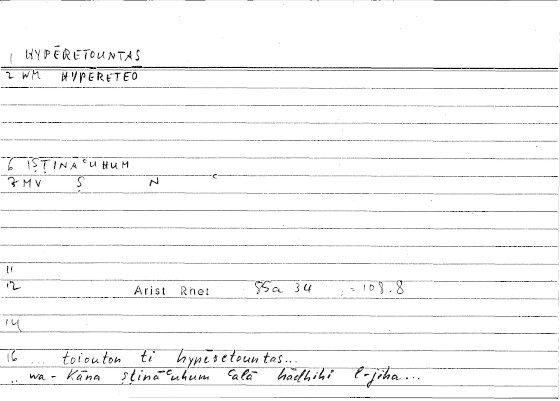 1 HYPĒRETOUNTAS
2 WM HYPĒRETEO
6 IṢṬINĀʿUHUM
7 MV Ṣ N ʿ
11
12 Arist Rhet 85a 34 = 108.8
14
16 ... toiouton ti hypēretountas...
.. wa-Kāna ṣṭināʿuhum ʿalā hādhihi l-jiha...